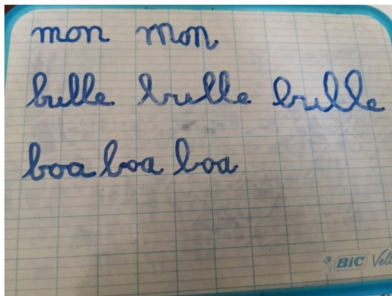 mon mon
bulle bulle bulle
boa boa boa
BIC Vell